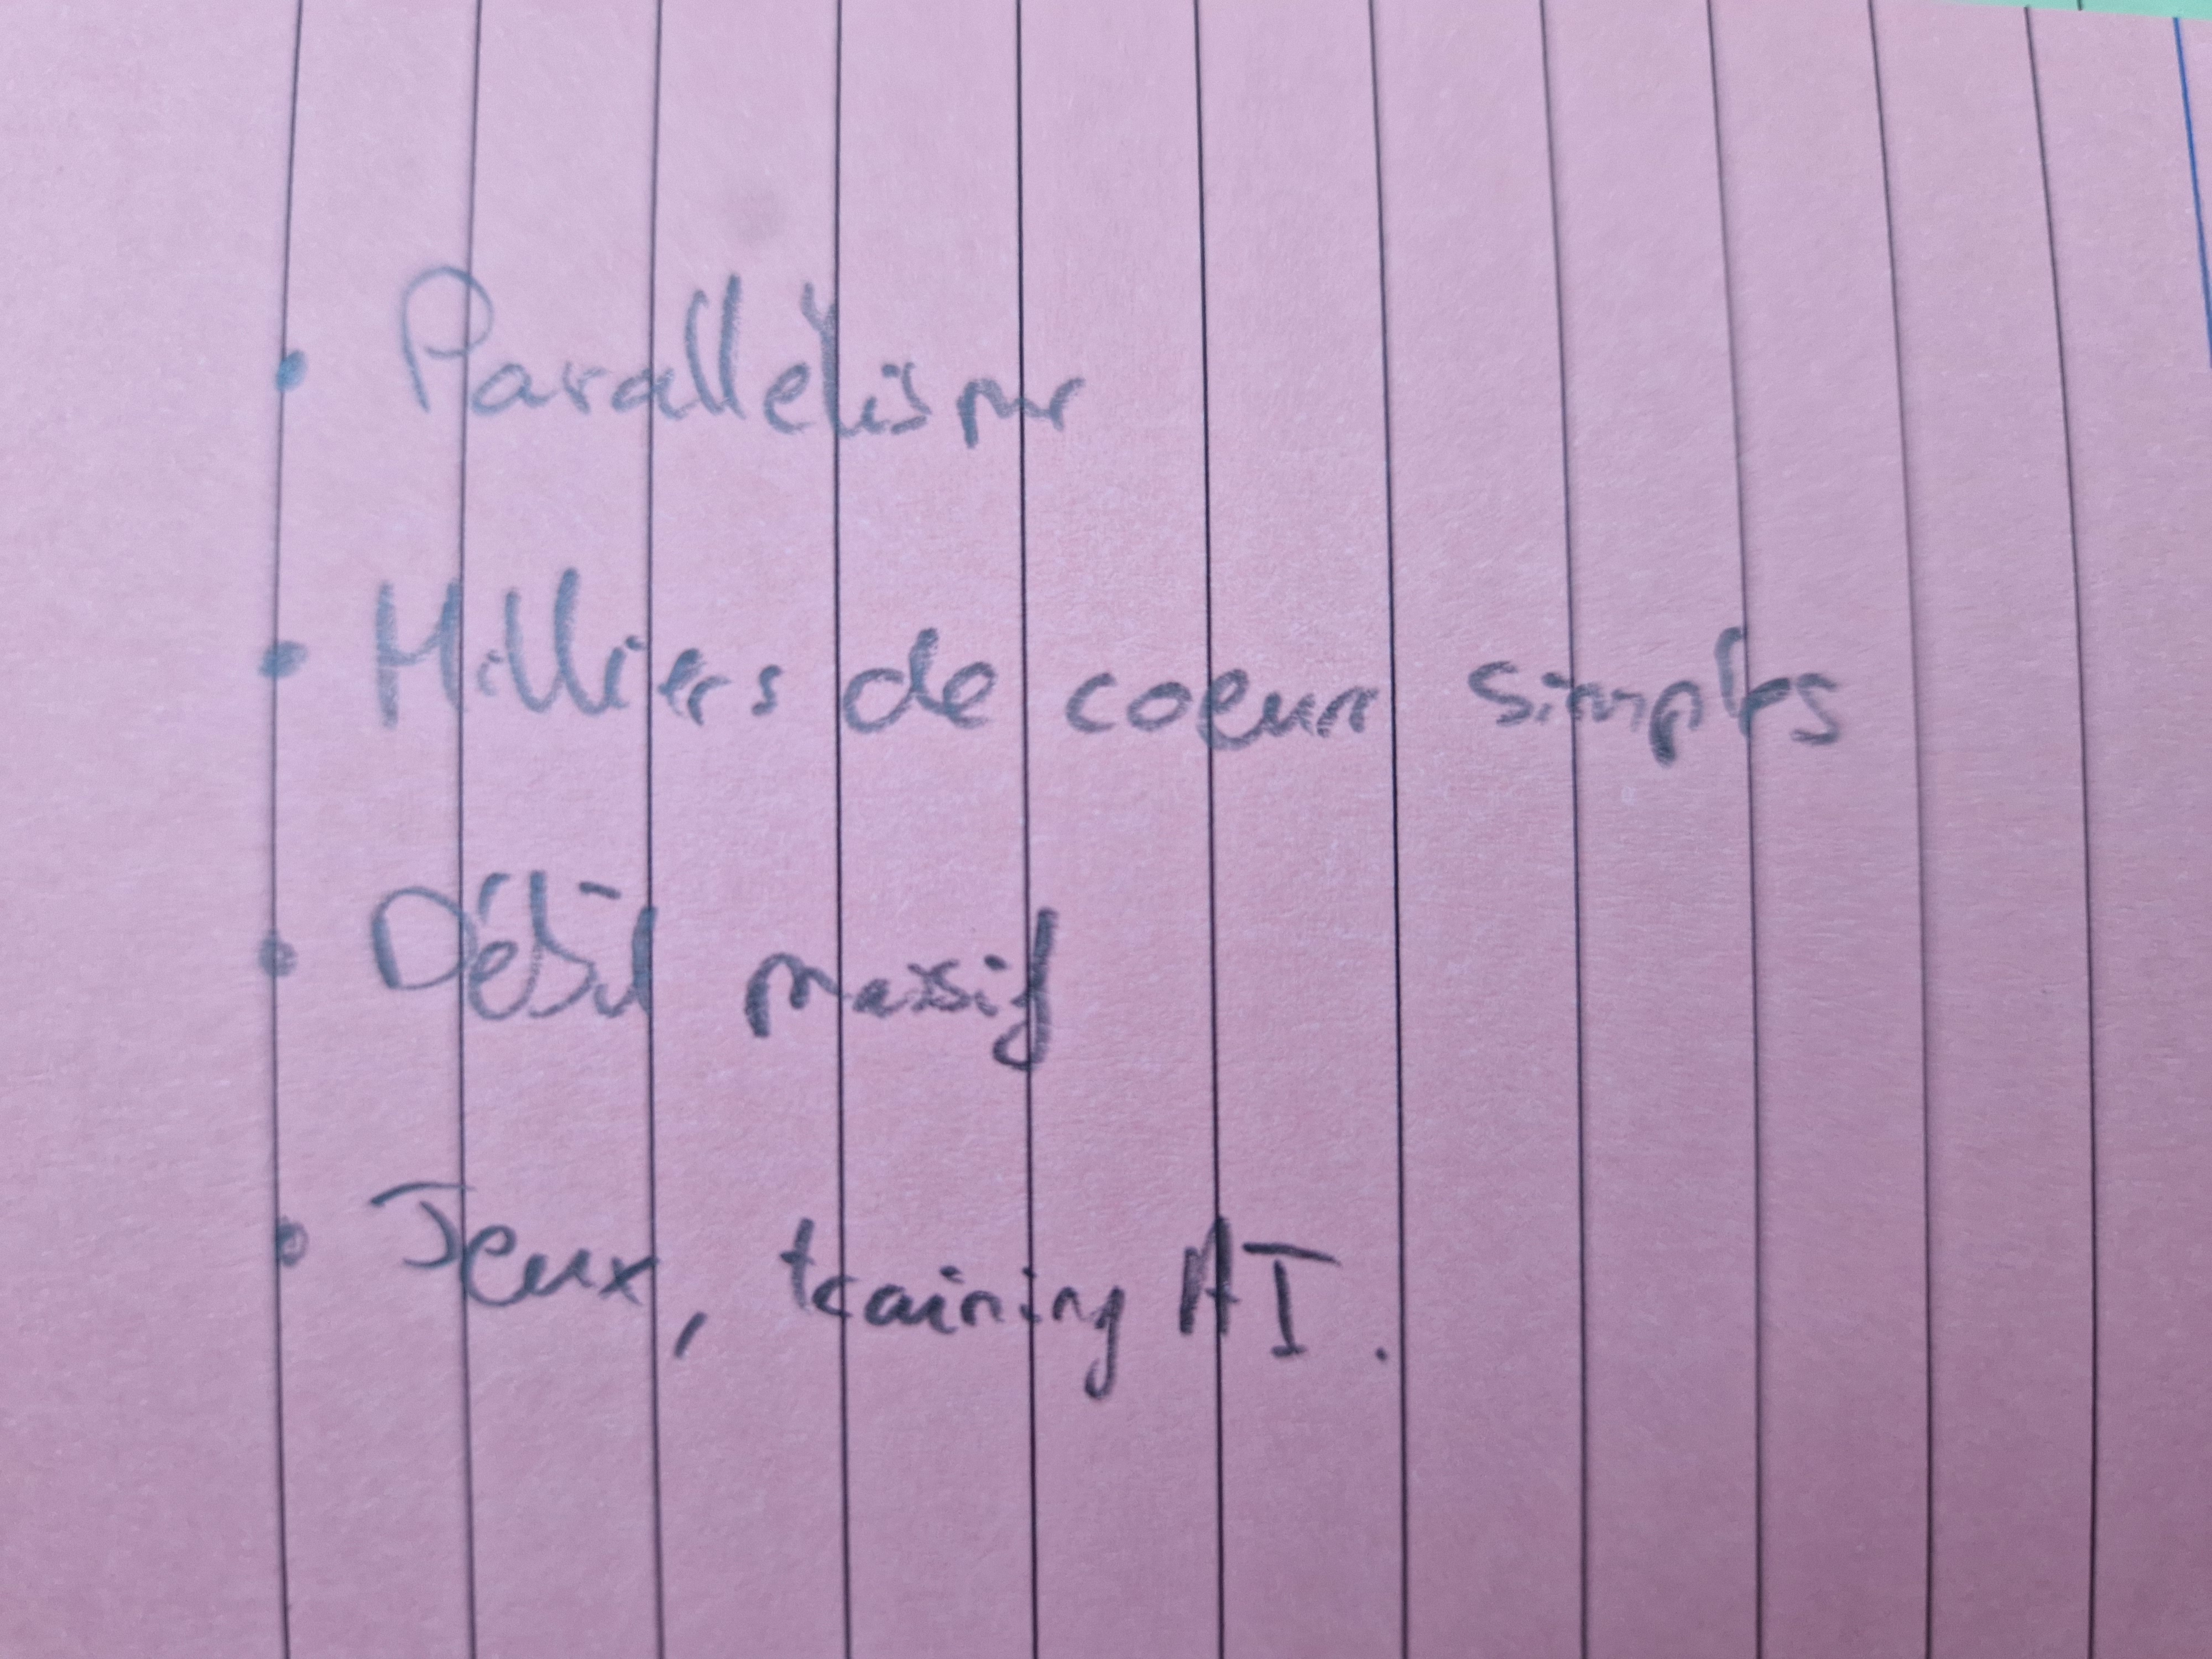 • Parallélisme
• Milliers de coeurs simples
• Débit massif
• Jeux, training AI.